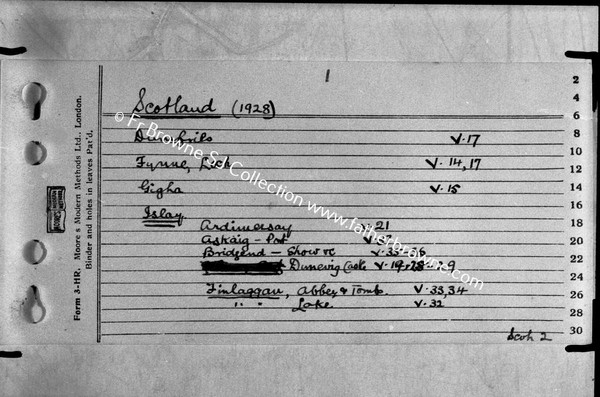 1
Scotland (1928)
V. 17
Fyne, Loch V. 14, 17
Gigha V. 15
Islay
Ardimersay 21
Askaig - Port
Bridgend - Show
Dunevig Castle
Finlaggan, Abbey & Tomb. V. 33, 34
" " Lake. V. 32
Scoh 2
2
4
6
8
10
12
14
16
18
20
22
24
26
28
30
Form 3-HR. Moore's Modern Methods Ltd., London.
Binder and holes in leaves Pat'd.
© Fr Browne SJ Collection www.fatherbrowne.com